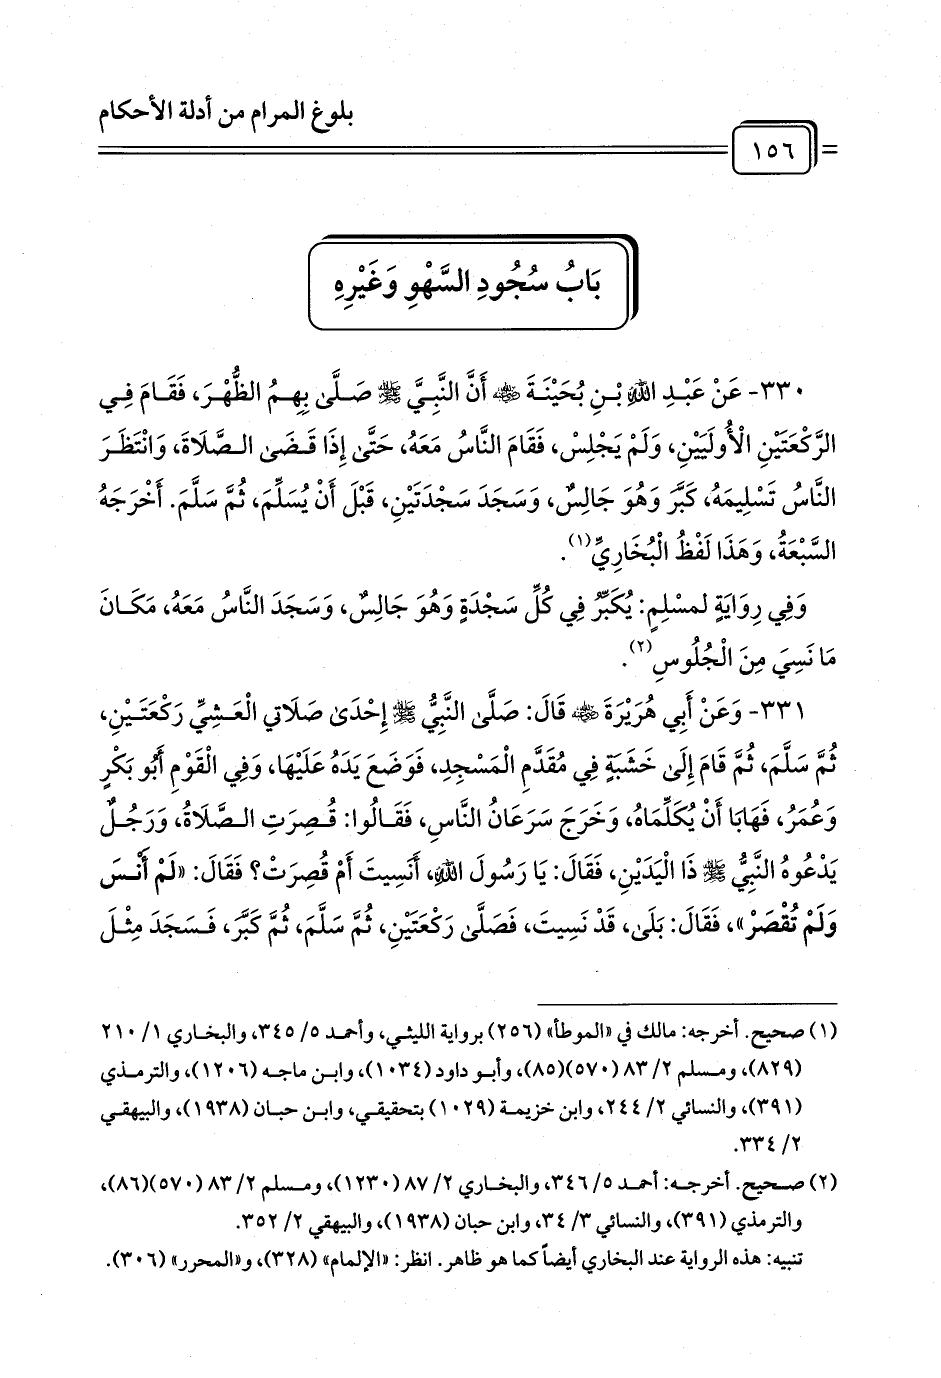 بلوغ المرام من أدلة الأحكام
١٥٦
بَابُ سُجُودِ السَّهْوِ وَغَيْرِهِ
٣٣٠- عَنْ عَبْدِ اللهِ بْنِ بُحَيْنَةَ ﷺ أَنَّ النَّبِيَّ ﷺ صَلَّى بِهِمُ الظُّهْرَ، فَقَامَ فِي
الرَّكْعَتَيْنِ الْأُولَيَيْنِ، وَلَمْ يَجْلِسْ، فَقَامَ النَّاسُ مَعَهُ، حَتَّى إِذَا قَضَى الصَّلَاةَ، وَانْتَظَرَ
النَّاسُ تَسْلِيمَهُ، كَبَّرَ وَهُوَ جَالِسٌ، وَسَجَدَ سَجْدَتَيْنِ، قَبْلَ أَنْ يُسَلِّمَ، ثُمَّ سَلَّمَ. أَخْرَجَهُ
السَّبْعَةُ، وَهَذَا لَفْظُ الْبُخَارِيِّ(١).
وَفِي رِوَايَةٍ لمسْلِمٍ: يُكَبِّرُ فِي كُلِّ سَجْدَةٍ وَهُوَ جَالِسٌ، وَسَجَدَ النَّاسُ مَعَهُ، مَكَانَ
مَا نَسِيَ مِنَ الْجُلُوسِ(٢).
٣٣١- وَعَنْ أَبِي هُرَيْرَةَ ﷺ قَالَ: صَلَّى النَّبِيُّ ﷺ إِحْدَىٰ صَلَاتي الْعَشِيِّ رَكْعَتَيْنِ،
ثُمَّ سَلَّمَ، ثُمَّ قَامَ إِلَى خَشَبَةٍ فِي مُقَدَّمِ الْمَسْجِدِ، فَوَضَعَ يَدَهُ عَلَيْهَا، وَفِي الْقَوْمِ أَبُو بَكْرٍ
وَعُمَرُ، فَهَابَا أَنْ يُكَلِّمَاهُ، وَخَرَجَ سَرَعَانُ النَّاسِ، فَقَالُوا: قُصِرَتِ الصَّلَاةُ، وَرَجُلٌ
يَدْعُوهُ النَّبِيُّ ﷺ ذَا الْيَدَيْنِ، فَقَالَ: يَا رَسُولَ اللهِ، أَنَسِيتَ أَمْ قُصِرَتْ؟ فَقَالَ: «لَمْ أَنْسَ
وَلَمْ تُقْصَرْ»، فَقَالَ: بَلَى، قَدْ نَسِيتَ، فَصَلَّى رَكْعَتَيْنِ، ثُمَّ سَلَّمَ، ثُمَّ كَبَّرَ، فَسَجَدَ مِثْلَ
(١) صحيح. أخرجه: مالك في «الموطأ» (٢٥٦) برواية الليثي، وأحمد ٥/ ٣٤٥، والبخاري ١/ ٢١٠
(٨٢٩)، ومسلم ٢/ ٨٣ (٥٧٠)(٨٥)، وأبو داود (١٠٣٤)، وابن ماجه (١٢٠٦)، والترمذي
(٣٩١)، والنسائي ٢/ ٢٤٤، وابن خزيمة (١٠٢٩) بتحقيقي، وابن حبان (١٩٣٨)، والبيهقي
٢/ ٣٣٤.
(٢) صحيح. أخرجه: أحمد ٥/ ٣٤٦، والبخاري ٢/ ٨٧ (١٢٣٠)، ومسلم ٢/ ٨٣ (٥٧٠)(٨٦)،
والترمذي (٣٩١)، والنسائي ٣/ ٣٤، وابن حبان (١٩٣٨)، والبيهقي ٢/ ٣٥٢.
تنبيه: هذه الرواية عند البخاري أيضاً كما هو ظاهر. انظر: «الإلمام» (٣٢٨)، و«المحرر» (٣٠٦).